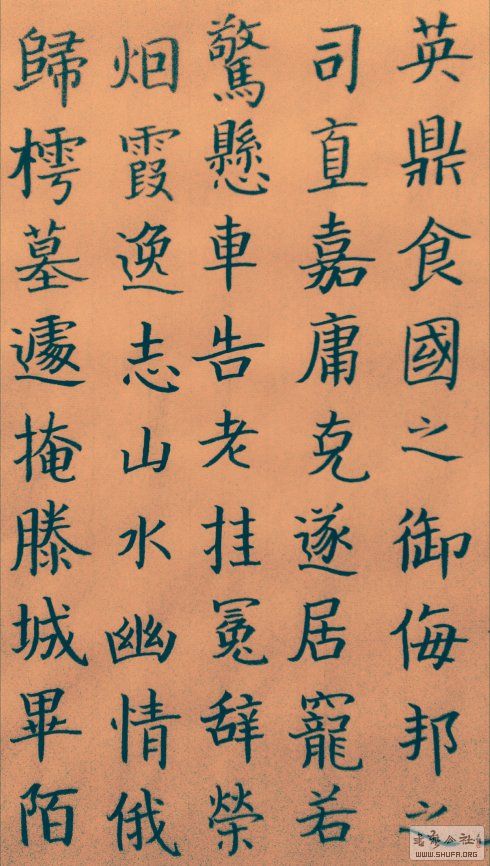 英鼎食國之御侮邦之
司直嘉庸克遂居寵若
驚懸車告老挂冕辭榮
烟霞逸志山水幽情俄
歸樗墓遽掩滕城畢陌
書法公社
WWW.SHUFA.ORG